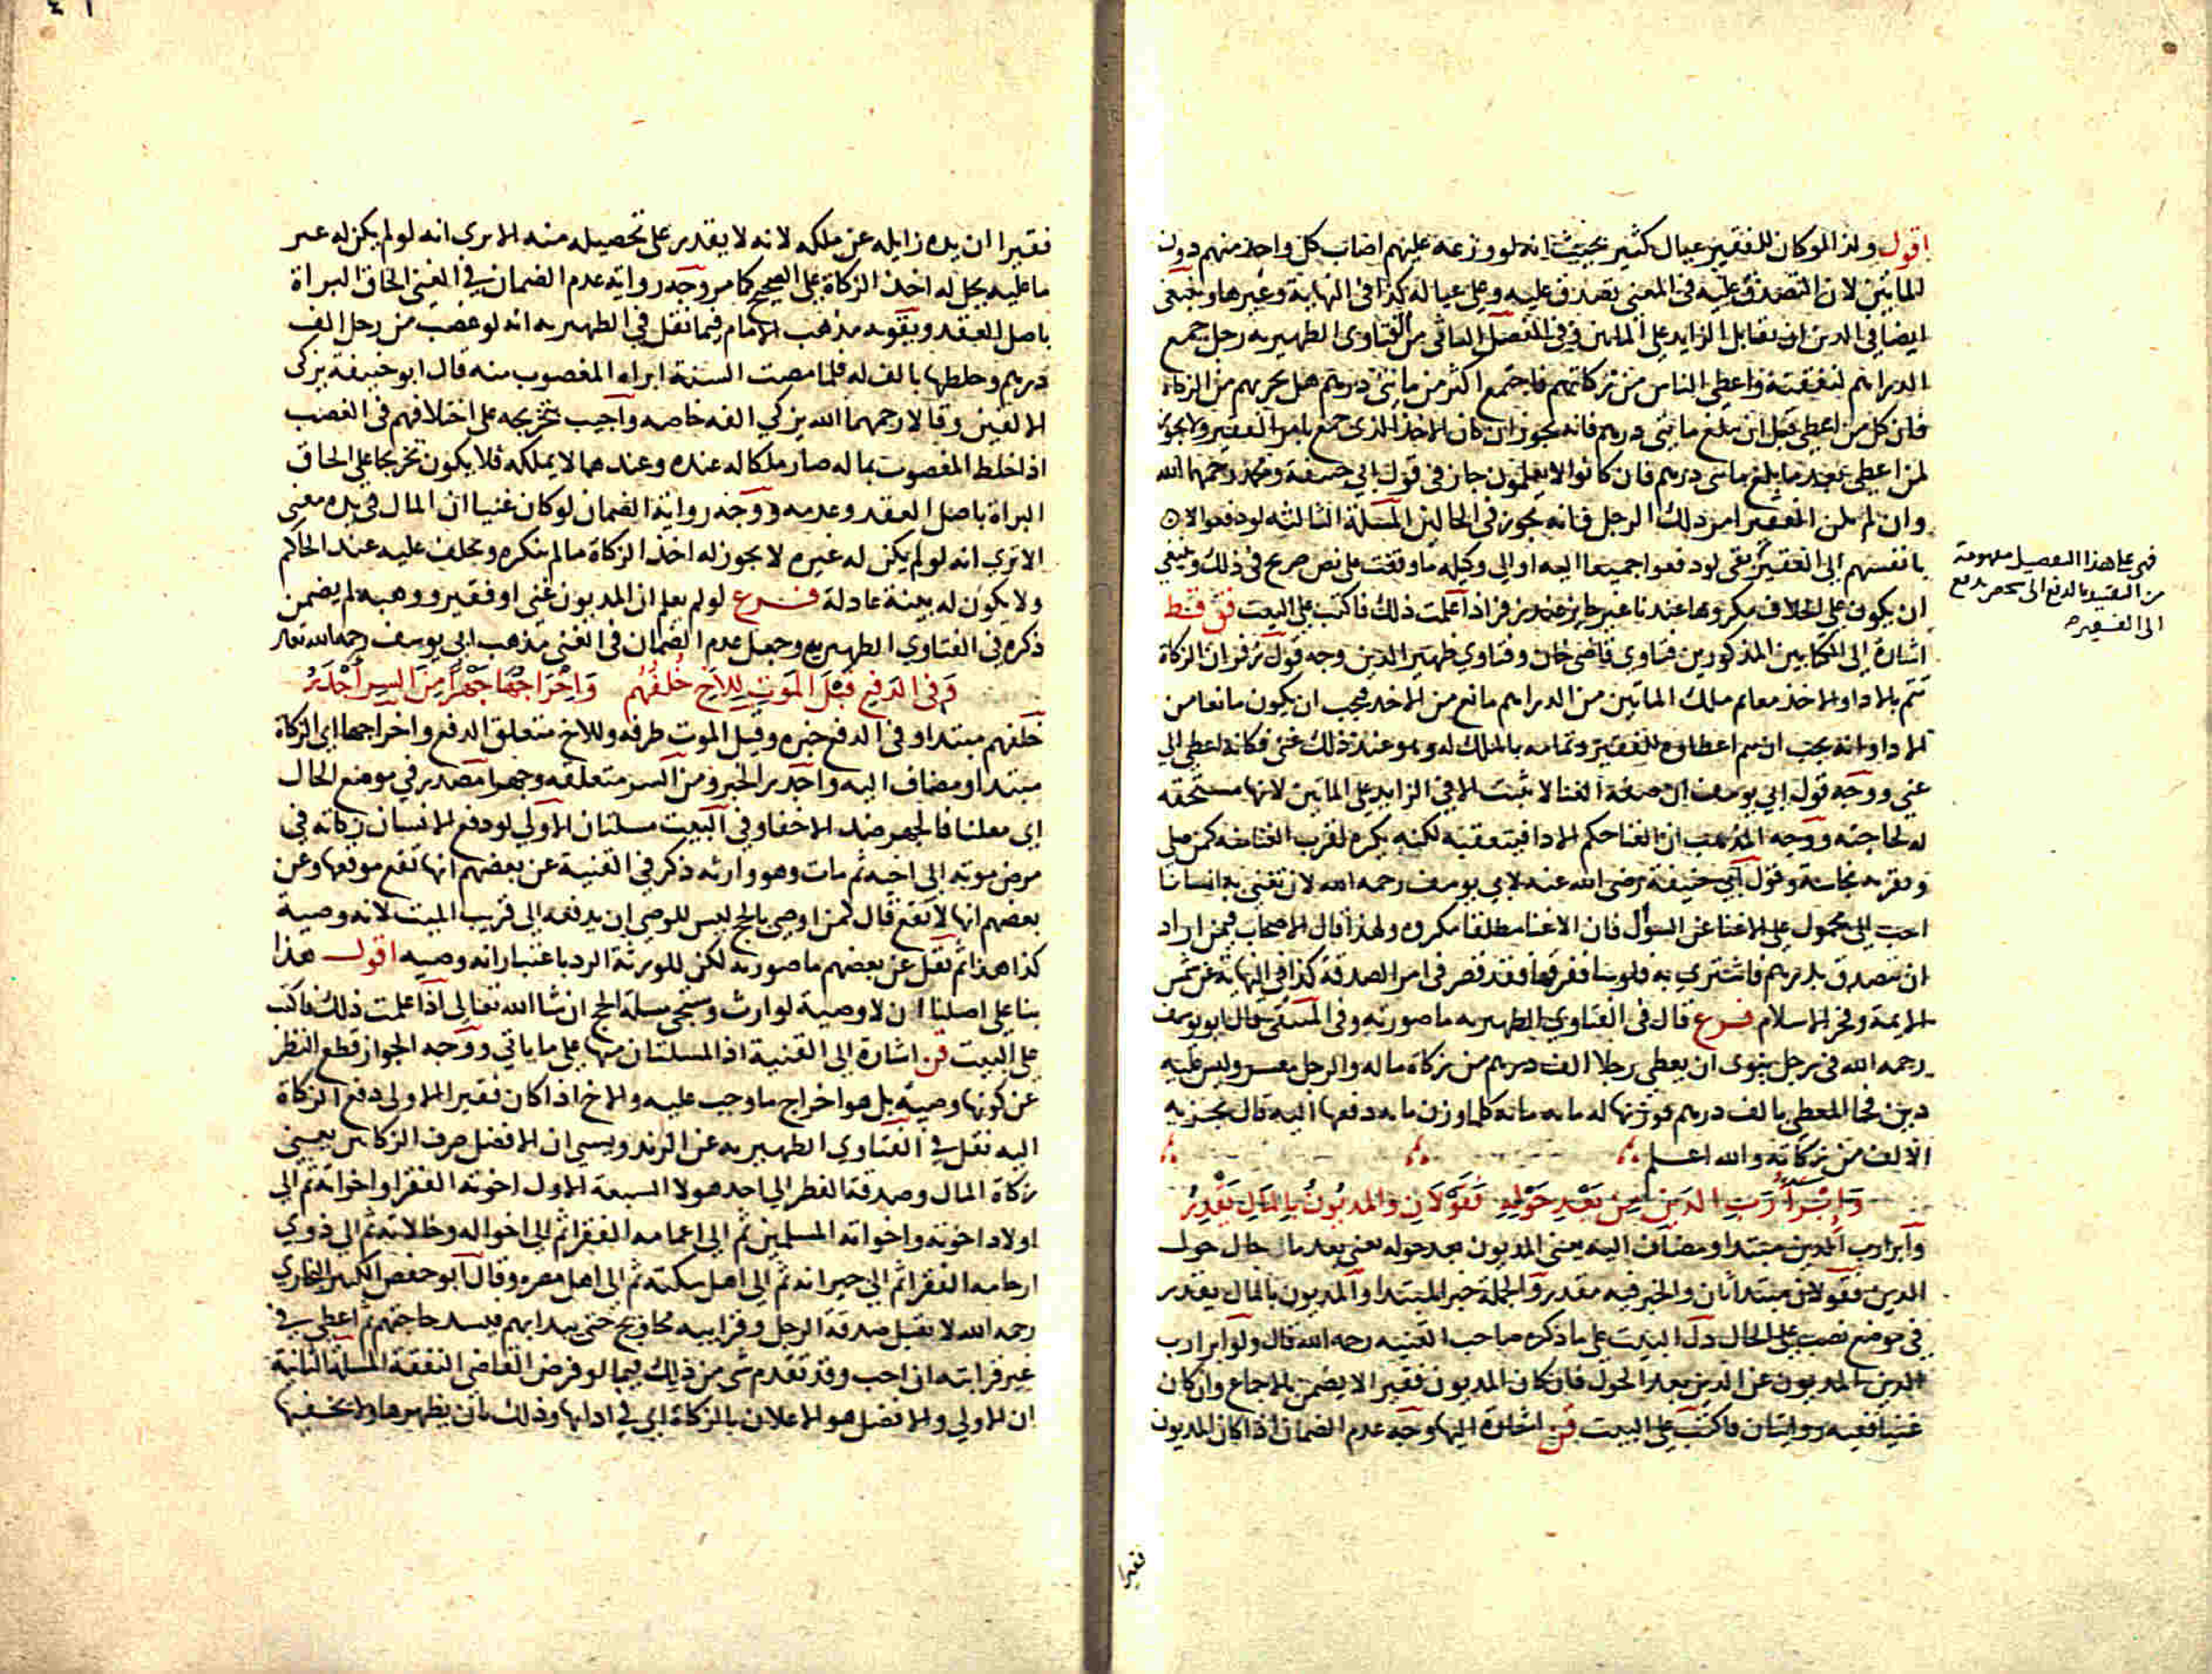 اقول ولذا لو كان للفقير عيال كثير بحيث انه لو وزعه عليهم اصاب كل واحد منهم دون
المايتين لان التصدق عليه في المعنى تصدق عليه وعلى عياله كذا في النهاية وغيرها وينبغي
ايضا في الدين ان يقابل الزايد على المايتين وفي الفصل الثاني من الفتاوى الظهيريه رجل جمع
الدراهم لنفقته واعطى الناس من زكاتهم فاجتمع اكثر من مايتي درهم هل يجزيهم من الزكاة
فان كل من اعطى قبل ان يبلغ مايتي درهم فانه يجوز ان كان الاخذ الذي جمع بامر الفقير ولا يجوز
لمن اعطى بعد ما بلغ مايتي درهم فان كانوا لا يعلمون جاز في قول ابي حنيفة ومحمد رحمهما الله
وان لم يكن الفقير امر ذلك الرجل فانه يجوز في الحالين المسلة الثالثه لو دفعوا لا
بانفسهم الى الفقير بقى لو دفعوا جميعا اليه او الى وكيله ما وقفت على نص صريح في ذلك وينبغي
ان يكون على الخلاف مكروها عندنا غير جايز عند زفر اذا علمت ذلك فاكتب على البيت فق قظ
اشارة الى الكتابين المذكورين فتاوى قاضي خان وفتاوي ظهير الدين وجه قول زفر ان الزكاة
تتم بالادا والاخذ معا ثم ملك المايتين من الدراهم مانع من الاخذ فيجب ان يكون مانعا من
الادا وانه يجب ان يتم اعطاوه للفقير وتمامه بالملك له وهو عند ذلك غني فكانه اعطى الى
غني ووجه قول ابي يوسف ان صفة الغنا لا تثبت الا في الزايد على المايتين لانها مستحقه
له لحاجته ووجه المذهب ان الغنا حكم الادا فيتعقبه لكنه يكره لقرب الغنا منه كمن صلى
وبقربه نجاسة وقول ابي حنيفة رضي الله عنه لابي يوسف رحمه الله لان تغني به انسانا
احب الي محمول على الاغنا عن السوال فان الاغنا مطلقا مكروه ولهذا قال الاصحاب فيمن اراد
ان يتصدق بدرهم فاشترى به فلوسا ففرقها فقد قصر في امر الصدقة كذا في النهاية عن شمس
الايمة وفخر الاسلام فرع قال في الفتاوي الظهيريه ما صورته وفي المنتقى قال ابو يوسف
رحمه الله في رجل ينوى ان يعطي رجلا الف درهم من زكاة ماله والرجل معسر وليس عليه
دين فجا المعطي بالف درهم فوزنها له مايه مايه كلما وزن مايه دفعها اليه قال يجزيه
الالف من زكاته والله اعلم
وابرا رب الدين من بعد حوله فقولان والمديون بالمال يقدر
وابرا رب الدين مبتدا ومضاف اليه يعني المديون بعد حوله يعني بعد ما حال حول
الدين فقولان مبتدا ثان والخبر فيه مقدر والجملة خبر المبتدا والمديون بالمال يقدر
في موضع نصب على الحال دل البيت على ما ذكره صاحب القنيه رحمه الله قال ولو ابرا رب
الدين المديون عن الدين بعد الحول فان كان المديون فقيرا لا يضمن بالاجماع وان كان
غنيا ففيه روايتان فاكتب على البيت قن اشارة اليها وجه عدم الضمان اذا كان المديون
فهي على هذا التفصيل مفهومة
من التقييد بالدفع الى شخص يدفع
الى الفقير
فقيرا
فقيرا ان يده زايله عن ملكه لانه لا يقدر على تحصيله منه الا يرى انه لو لم يكن له غير
ما عليه يحل له اخذ الزكاة على الصحيح كما مر وجه رواية عدم الضمان في الغني الحاق البراة
باصل العقد ويقويه مذهب الامام فيما نقل في الظهيريه انه لو غصب من رجل الف
درهم وخلطها بالف له فلما مضت السنة ابراه المغصوب منه قال ابو حنيفة يزكى
الالفين وقالا رحمهما الله يزكي الفه خاصه واجيب بتخريجه على اختلافهم في الغصب
اذا خلط المغصوب بماله صار ملكا له عنده وعندهما لا يملكه فلا يكون تخريجا على الحاق
البراة باصل العقد وعدمه ووجه رواية الضمان لو كان غنيا ان المال في يده معنى
الا ترى انه لو لم يكن له غيره لا يجوز له اخذ الزكاة مالم ينكره ويحلف عليه عند الحاكم
ولا يكون له بينة عادلة فرع لو لم يعلم ان المديون غني او فقير ووهبه لم يضمن
ذكره في الفتاوي الظهيريه وجعل عدم الضمان في الغني مذهب ابي يوسف رحمه الله تعالى
وفي الدفع قبل الموت للاخ خلفهم واخراجها جهرا من السر اجدر
خلفهم مبتدا وفي الدفع خبره وقبل الموت ظرفه وللاخ متعلق الدفع واخراجها اي الزكاة
مبتدا ومضاف اليه واجدر الخبر ومن السر متعلقه وجهرا مصدر في موضع الحال
اي معلنا فالجهر ضد الاخفا وفي البيت مسلتان الاولى لو دفع الانسان زكاته في
مرض موته الى اخيه ثم مات وهو وارثه ذكر في القنية عن بعضهم انها تقع موقعها وعن
بعضهم انها لا تقع قال كمن اوصى بالحج ليس للوصي ان يدفعه الى قريب الميت لانه وصية
كذا هذا ثم نقل عن بعضهم ما صورته لكن للورثة الرد باعتبار انه وصيه اقول هذا
بنا على اصلنا ان لا وصية لوارث وستجي مسلة الحج ان شا الله تعالى اذا علمت ذلك فاكتب
على البيت قن اشارة الى القنية اذ المسلتان منها على ما ياتي ووجه الجواز قطع النظر
عن كونها وصية بل هو اخراج ما وجب عليه والاخ اذا كان فقيرا الاولى دفع الزكاة
اليه نقل في الفتاوى الظهيريه عن الزندويستي ان الافضل صرف الزكاتين يعني
زكاة المال وصدقة الفطر الى احد هولا السبعة الاول اخوته الفقرا واخواته ثم الى
اولاد اخوته واخواته المسلمين ثم الى اعمامه الفقرا ثم الى اخواله وخالاته ثم الى ذوي
ارحامه الفقرا ثم الى جيرانه ثم الى اهل سكته ثم الى اهل مصره وقال ابو حفص الكبير البخاري
رحمه الله لا تقبل صدقة الرجل وقرابته محاويج حتى يبدا بهم فيسد حاجتهم ثم اعطى في
غير قرابته ان احب وقد تقدم شي من ذلك فيما لو فرض القاضي النفقة المسلة الثانية
ان الاولى والافضل هو الاعلان بالزكاة اي في ادايها وذلك بان يظهرها ولا يخفيها